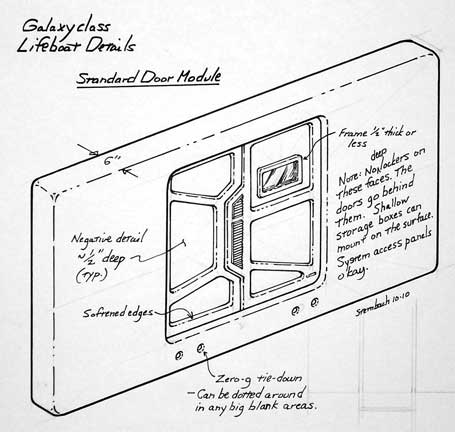 Galaxy class
Lifeboat Details
Standard Door Module
6"
Frame ½" thick or
less
deep
Note: No lockers on
these faces. The
doors go behind
them. Shallow
storage boxes can
mount on the surface.
System access panels
okay.
Negative detail
~½" deep
(Typ.)
Softened edges
Sternbach 10.10
Zero-g tie-down
- Can be dotted around
in any big blank areas.